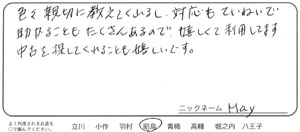 色々親切に教えてくれるし、対応もていねいで
助かることもたくさんあるので嬉しくて利用してます
中古を探してくれることも嬉しいです。
ニックネーム May
よく利用されるお店を
○で囲んでください。
立川 小作 羽村 昭島 青梅 高幡 堀之内 八王子